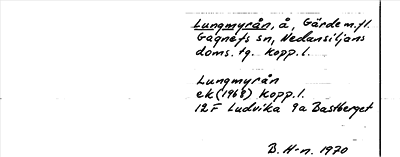 Lungmyrån, å, Gärde m.fl.
Gagnefs sn, Nedansiljans
doms. tg. Kopp.l.
Lungmyrån
ek (1968) Kopp.l.
12F Ludvika 9a Bastberget
B. H-n. 1970